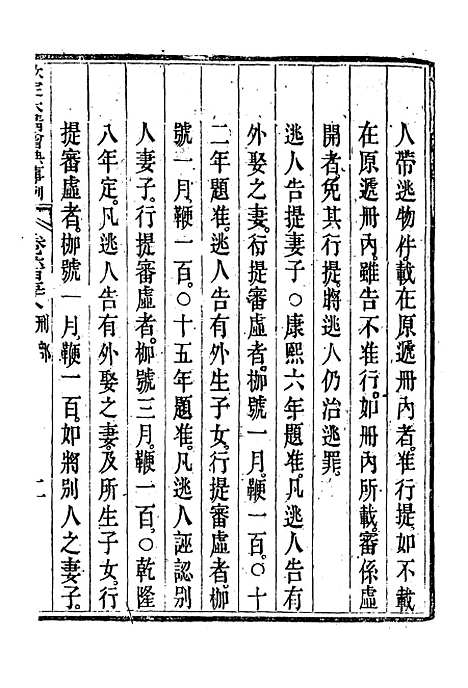 人帶逃物件載在原遞册內者准行提如不載
在原遞册內雖告不准行如册內所載審係虛
開者免其行提將逃人仍治逃罪
逃人告提妻子○康熙六年題准凡逃人告有
外娶之妻行提審虛者枷號一月鞭一百○十
二年題准告有外生子女行提審虛者枷
號一月鞭一百○十五年題准凡逃人誣認別
人妻子行提審虛者枷號三月鞭一百○乾隆
八年定凡逃人告有外娶之妻及所生子女行
提審虛者枷號一月鞭一百如將別人之妻子
欽定大清會典事例 刑部 二